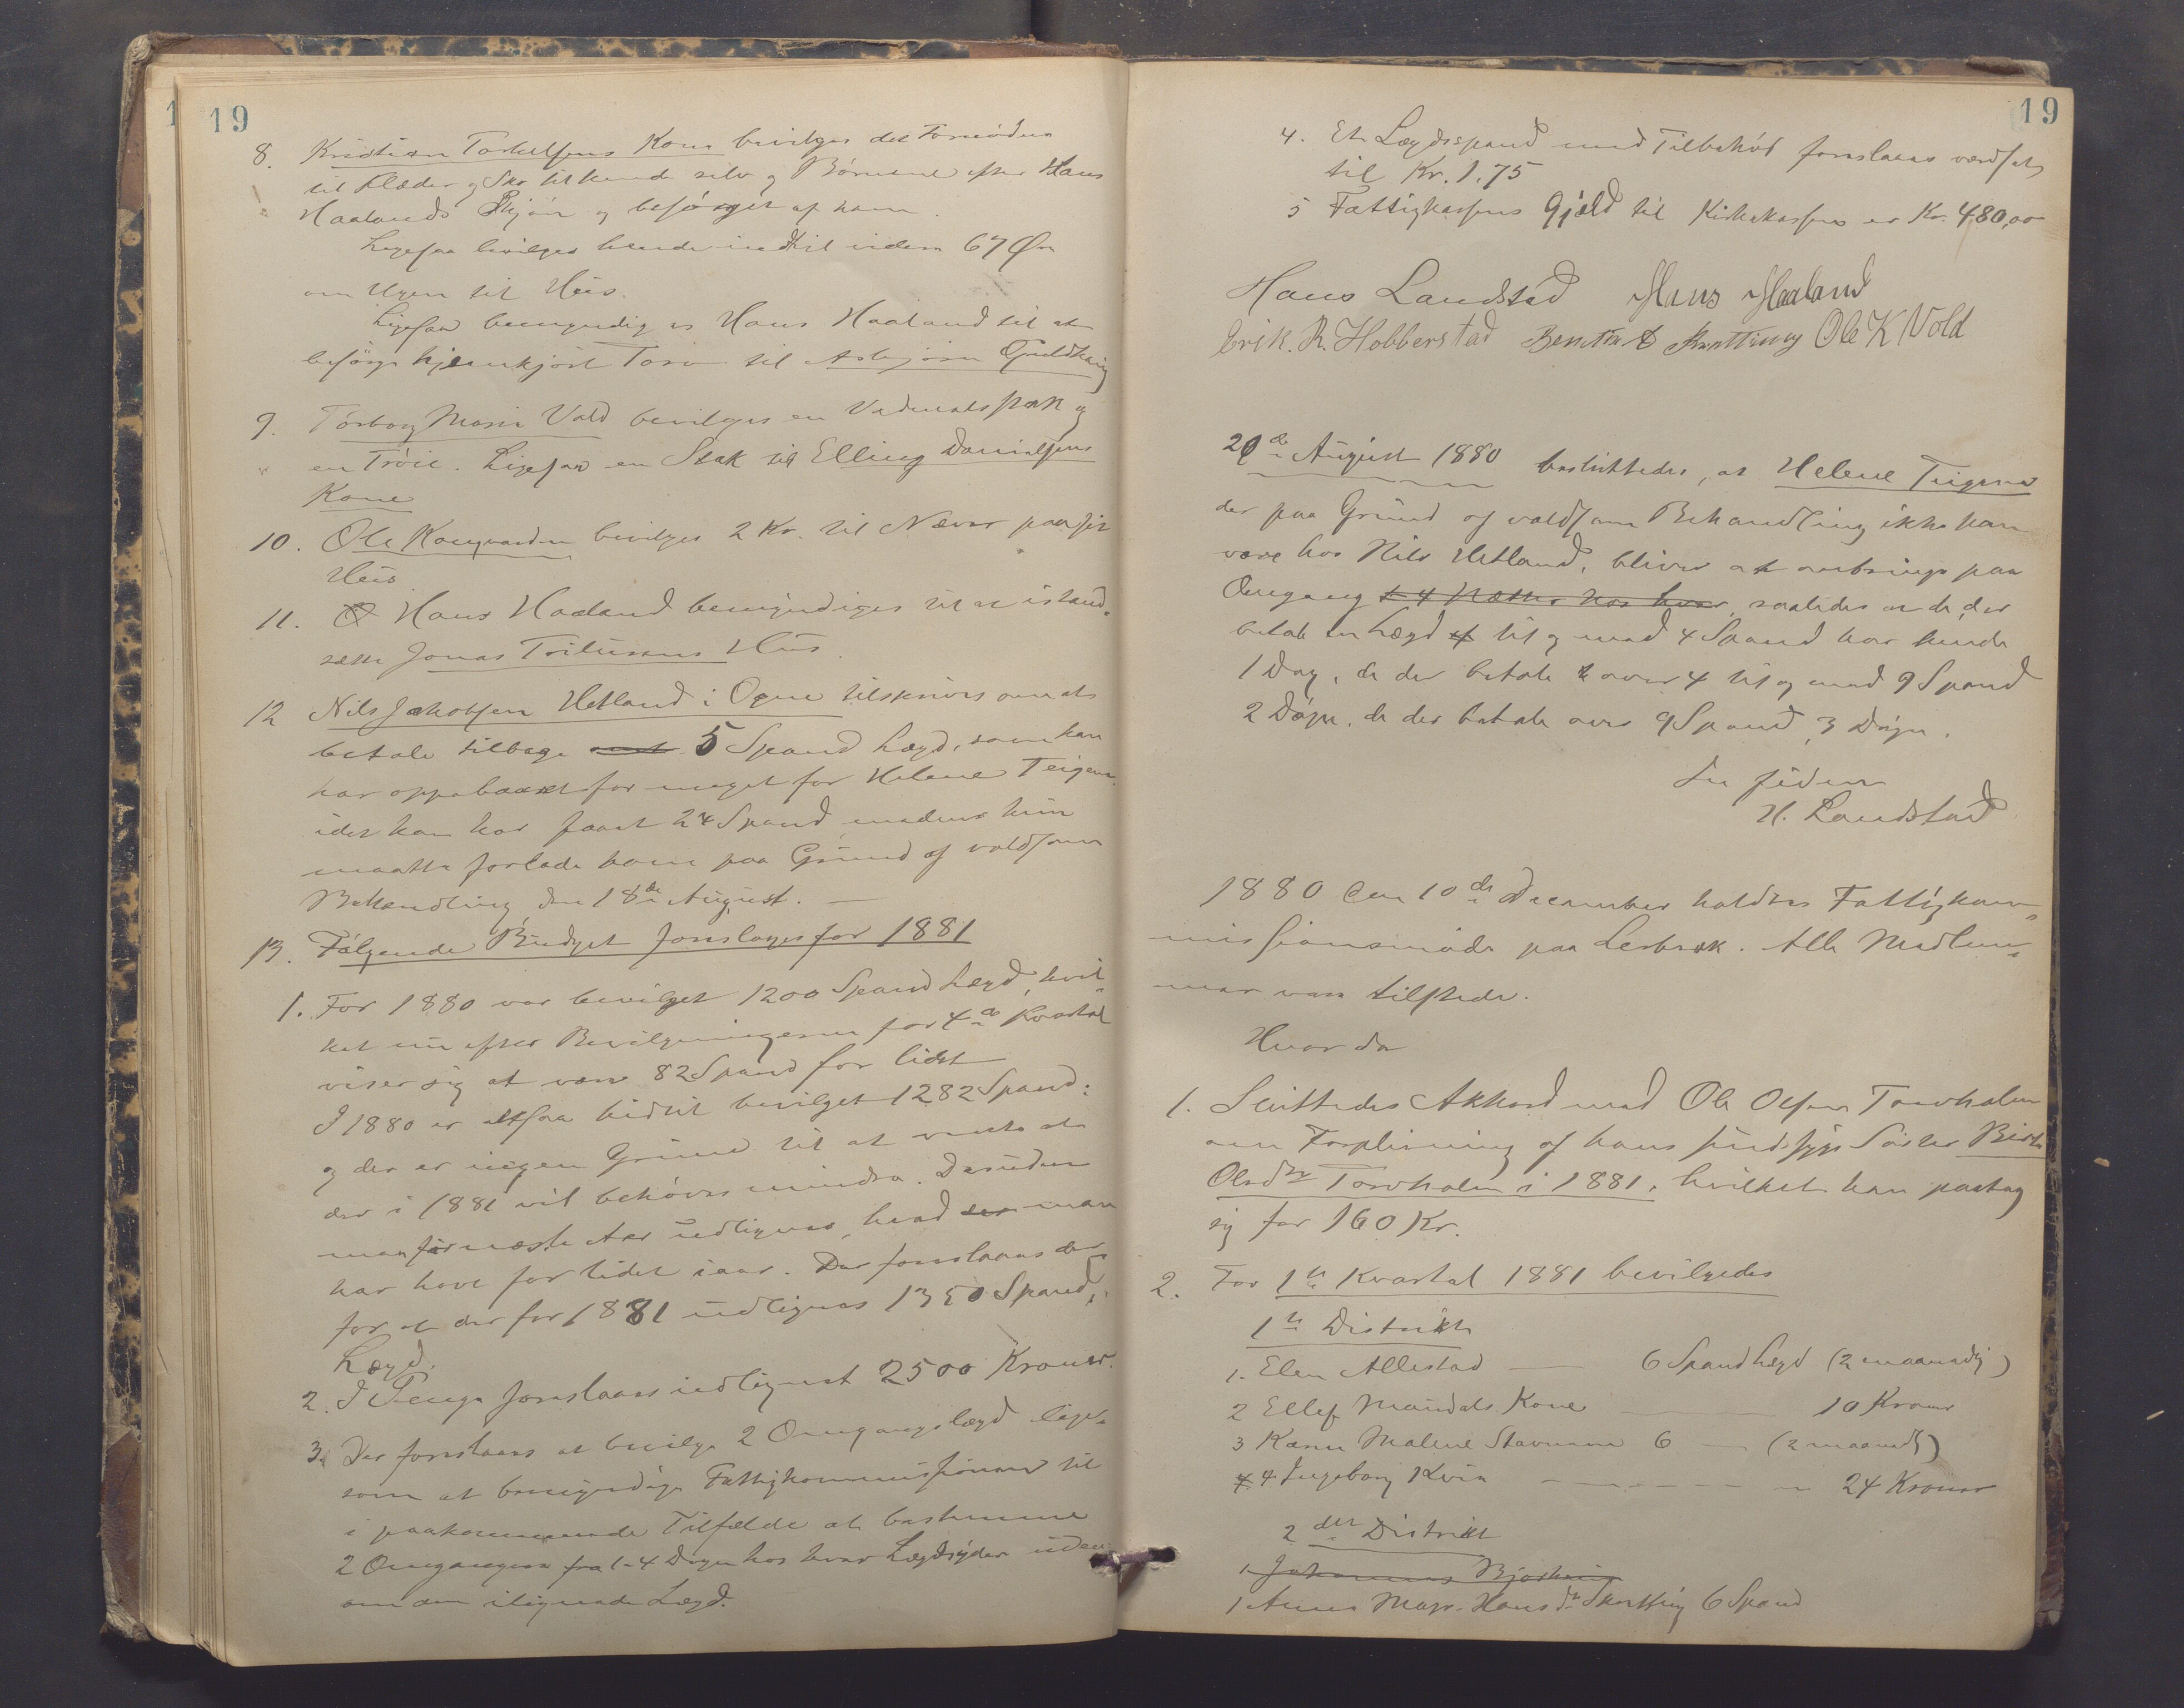 19
8. Kristian Torkelsens Kone bevilges det Fornødne
til Klæder og Sko til hende selv og Børnene efter Hans
Haalands Skjøn og besørget af ham.
Ligesaa bevilges hende indtil videre 67 Øre
om Ugen til Hus.
Ligesaa bemyndiges Hans Haaland til at
besørge hjemkjørt Torv til Asbjørn Guldhaug
9. Torborg Maria Vold bevilges en Vadmelsstak og
en Trøie. Ligesaa en Stak til Elling Danielsens
Kone
10. Ole Kongevarden bevilges 2 Kr. til Næver paa sit
Hus
11. Hans Haaland bemyndiges til at istand-
sætte Jonas Tollusens Hus.
12 Nils Jakobsen Hetland i Ogne tilskrives om at
betale tilbage 5 Spand Lægd, som han
har oppebaaret for meget for Helene Teigene
idet han har faaet 24 Spand medens hun
maatte forlade ham paa Grund af voldsom
Behandling den 18de August. —
13. Følgende Budget foreslages for 1881
1. For 1880 var bevilget 1200 Spand Lægd, hvil-
ket nu efter Bevilgningerne for 4de Kvartal
viser sig at være 82 Spand for lidet
I 1880 er altsaa hidtil bevilget 1282 Spand:
og der er ingen Grund til at vente at
der i 1881 vil behøves mindre. Desuden
maa før næste Aar udlignes, hvad man
har havt for lidet iaar. Der foreslaaes der-
for at der for 1881 udlignes 1350 Spand
Lægd.
2. I Penge foreslaaes udlignet 2500 Kroner.
3. Der foreslaaes at bevilge 2 Omgangslægd lige-
som at bemyndige Fattigkommissionen til
i paakommende Tilfælde at bestemme
2 Omgangene fra 1-4 Døgn hos hver Lægdsyder uden-
om den ilignede Lægd.
19
4. Et Lægdsspand med Tilbehør foreslaaes værdsat
til Kr. 1.75
5 Fattigkassens Gjæld til Kirkekassen er Kr. 480,00
Hans Landstad Hans Haaland
Erik. R. Hobberstad Ole K Vold
20de August 1880 besluttedes, at Helene Teigene
der paa Grund af voldsom Behandling ikke kan
være hos Nils Hetland, bliver at anbringe paa
Omgang 4 Nætter hos hver, saaledes at de, der
betale en Lægd til og med 4 Spand har hende
1 Dag, de der betale over 4 til og med 9 Spand
2 Døgn, de der betale over 9 Spand, 3 Døgn.
H. Landstad
1880 den 10de December holdtes Fattigkom-
missionsmøde paa Lerbræk. Alle Medlem-
mer vare tilstede.
Hvor da
1. Sluttedes Akkord med Ole Olsen Torvholen
om Forpleining af hans sindssyge Søster Berte
Olsdtr Torvholen i 1881, hvilket han paatog
sig for 160 Kr.
2. For 1te Kvartal 1881 bevilgedes
1te Distrikt
1. Elen Allestad — 6 Spand Lægd (2 maanedlig)
2 Ellef Maudals Kone — 10 Kroner
3 Karen Malene Stavnem 6 — (2 maanedl)
4 Ingeborg Kvia — 24 Kroner
2det Distrikt
1 Johannes
1 Anna Marg. Hansdtr Skretting 6 Spand